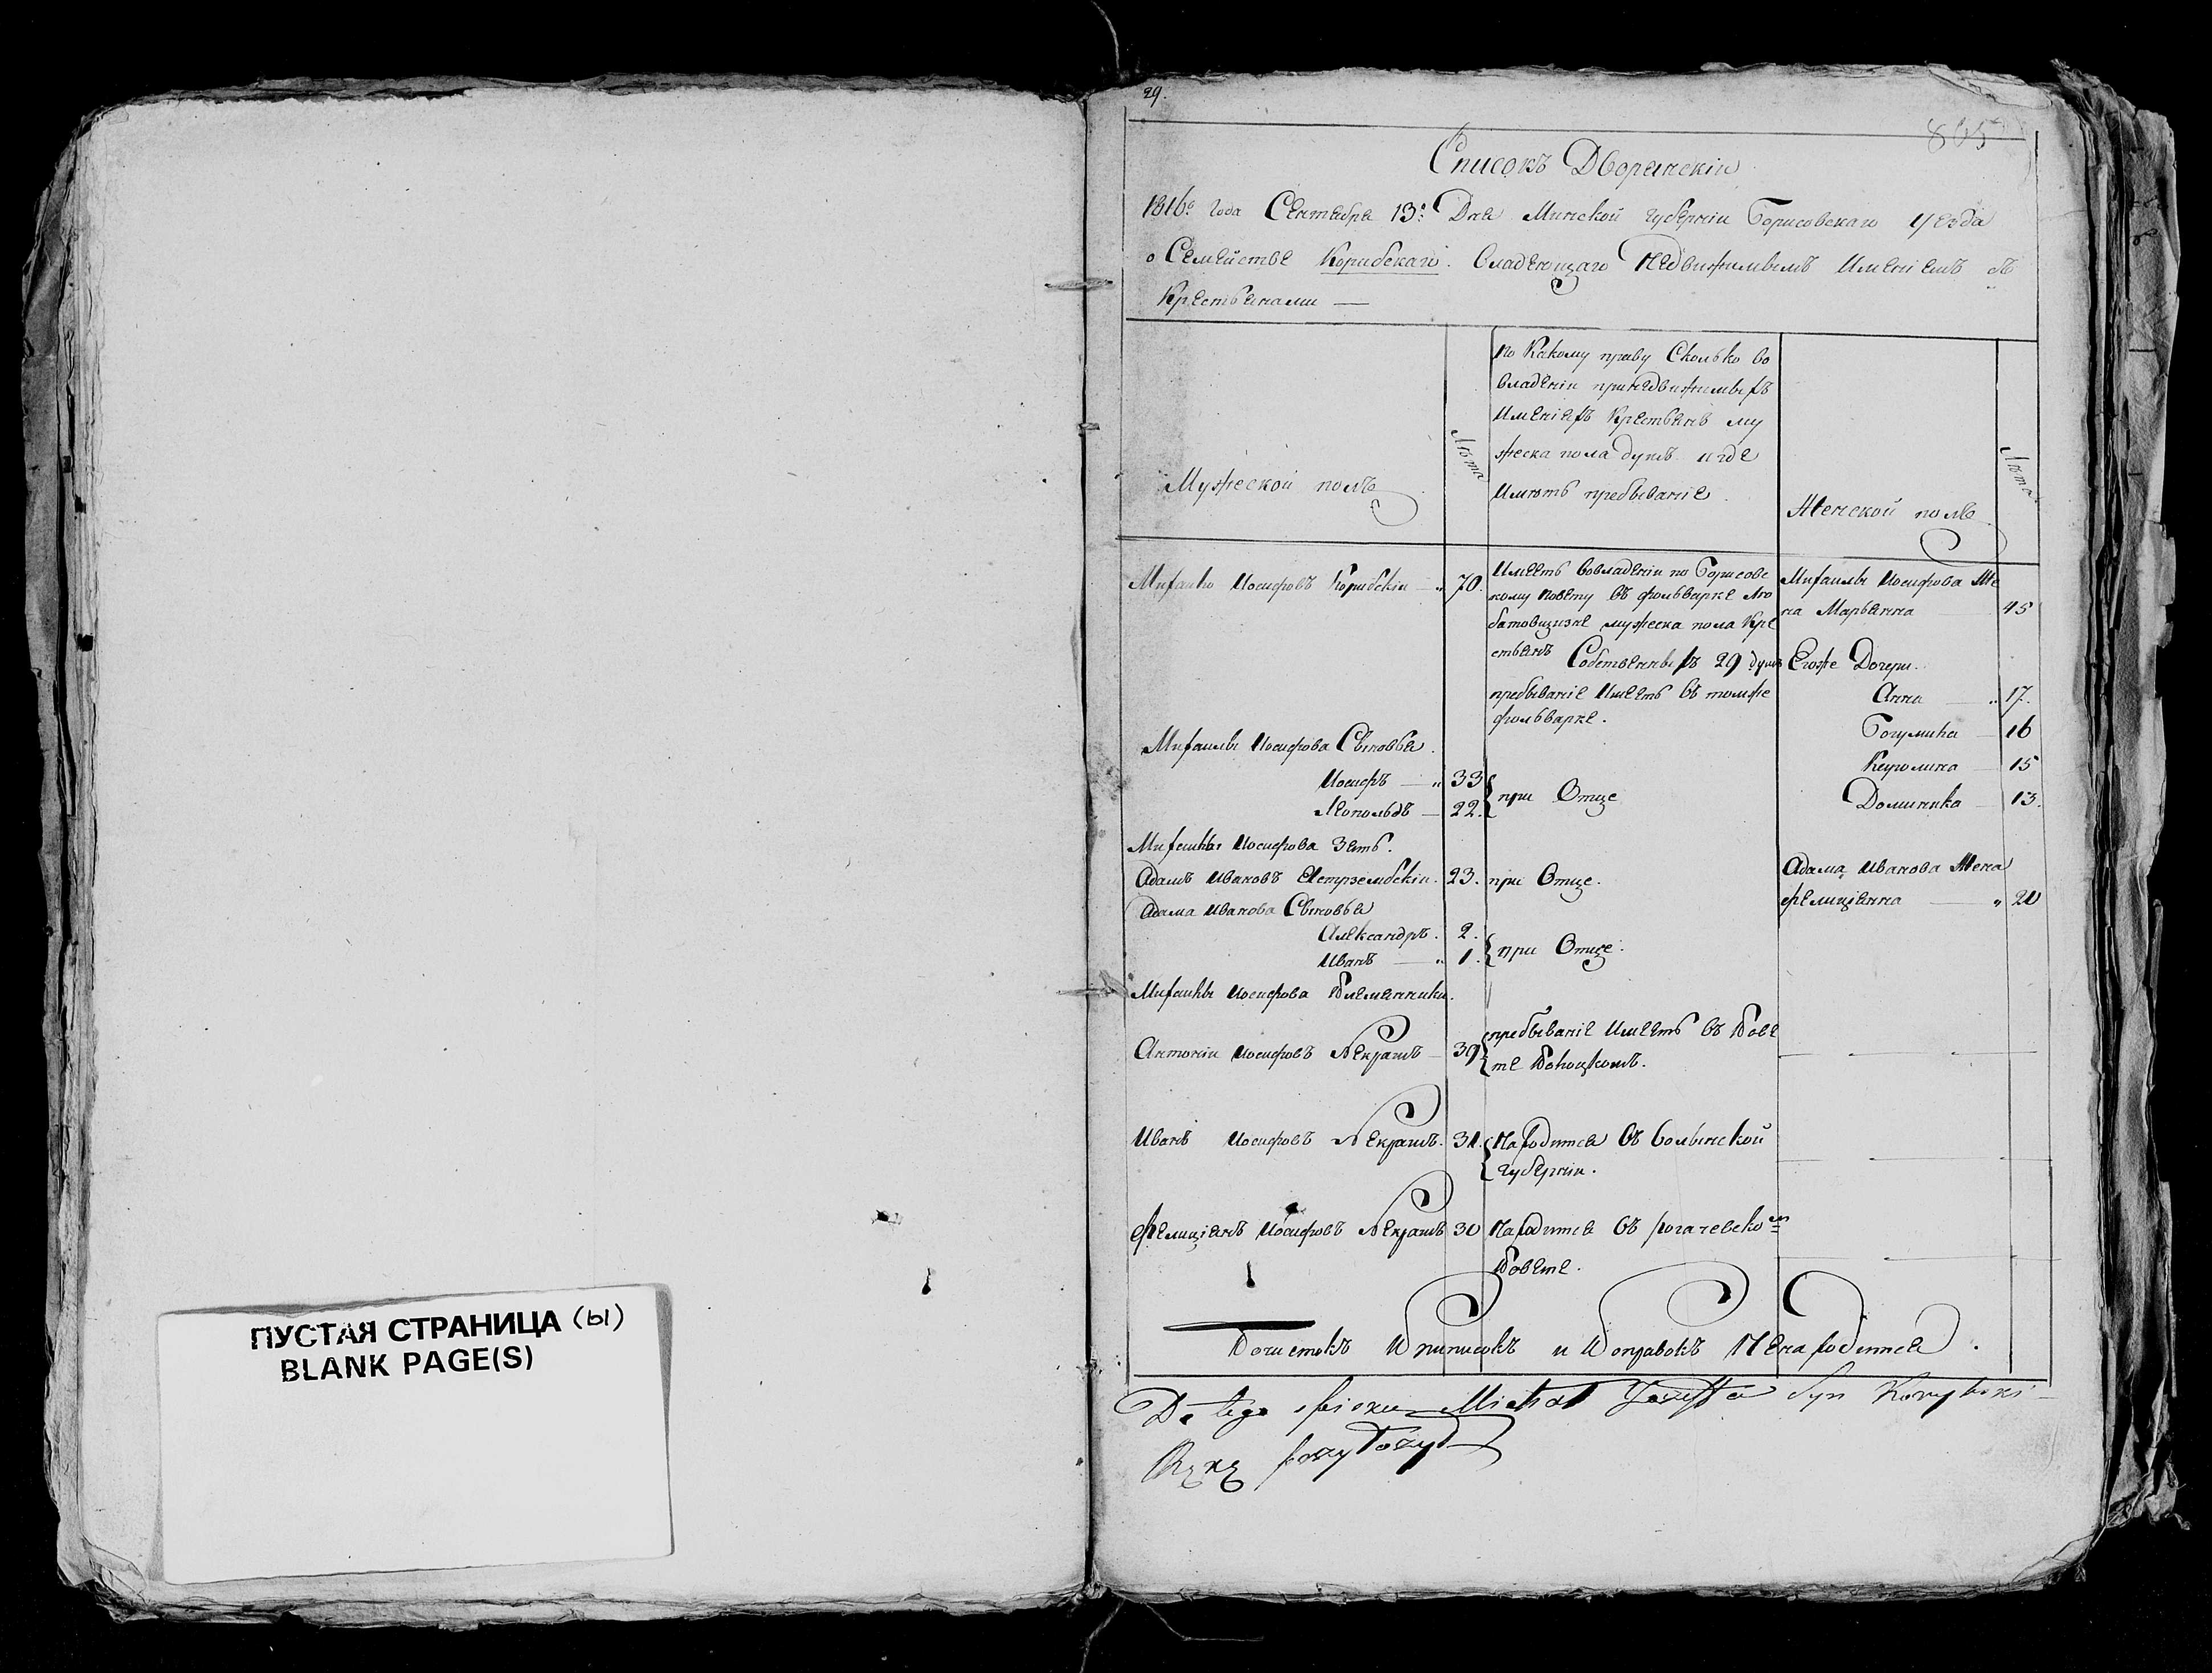 ПУСТАЯ СТРАНИЦА (ы)
BLANK PAGE(S)
29.
805
Списокъ Дворянскіи
1816го года Сентября 13го Дня Минской губерніи Борисовскаго Уезда
о Семействе Корибскаго. Владеющаго Недвижимымъ Имѣніемъ съ
Крестьянами —
Мужеской полъ
Лѣта
по Какому праву Сколько во
владеніи принедвижимыхъ
Именіяхъ Крестьянъ му
жеска пола душъ и где
Имѣтъ пребываніе.
Женской полъ
Лѣта
Михаило Иосифовъ Корибскіи — „ 70.
Имеетъ вовладеніи по Борисовс
кому Повету въ фольварке Лю
батовщизне мужеска пола Кре
стьянъ Собственныхъ 29 душъ
пребываніе Имеетъ въ томже
фольварке.
Михаилы Иосифова Же
на Марьянна 45
Егоже Дочери.
Анна — „ 17.
Богумила — 16
Каролина — 15
Доминика — 13.
Михаилы Иосифова Сыновья.
Иосифъ — „ 33
Леопольдъ — 22.
при Отце
Михаилы Иосифова Зять.
Адамъ Ивановъ Ястржембскіи. 23. при Отце.
Адама Иванова Жена
Фелиціянна — „ 20
Адама Иванова Сыновья
Александръ. 2.
Иванъ — „ 1.
при Отце.
Михаилы Иосифова Племянники.
Антоніи Иосифовъ Некрашъ — 39
пребываніе Имеетъ въ Пове
те Полоцкомъ.
Иванъ Иосифовъ Некрашъ. 31.
Находится въ Волынской
губерніи.
Фелиціянъ Иосифовъ Некрашъ 30
Находится въ рогачевском
Повете.
Почистокъ Приписокъ и Поправокъ Ненаходится.
Do tego spisku Michał Jozeffa Syn Korybski —
Ręką